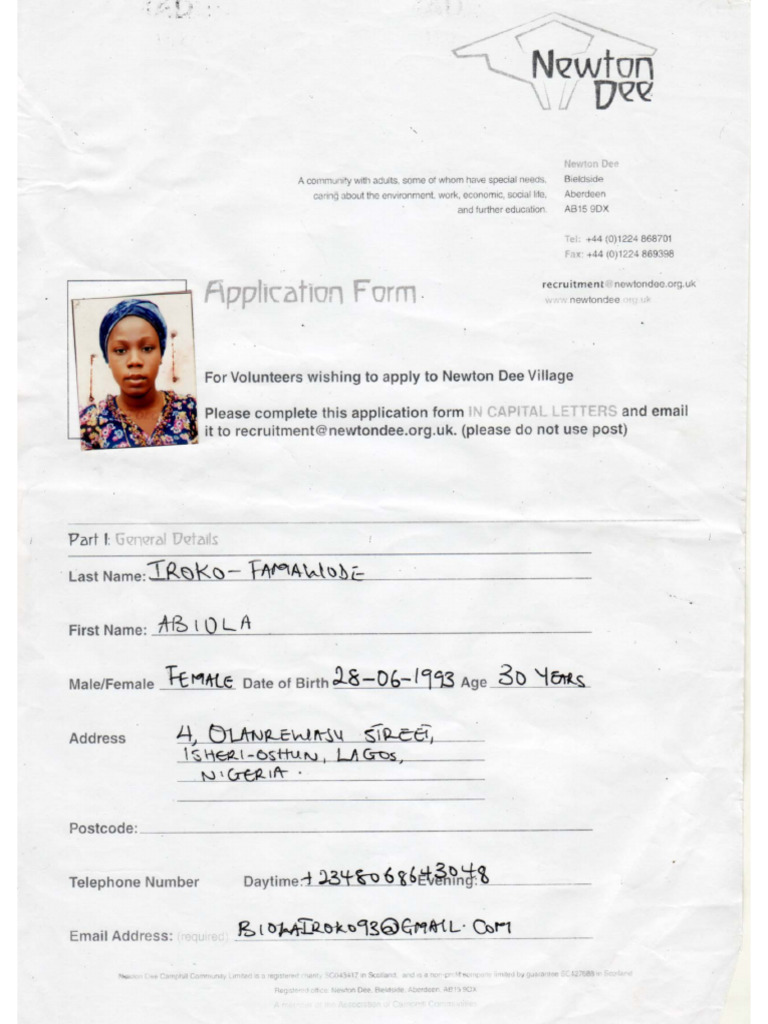 Newton
Dee
Newton Dee
A community with adults, some of whom have special needs, Bieldside
caring about the environment, work, economic, social life, Aberdeen
and further education. AB15 9DX
Tel: +44 (0)1224 868701
Fax: +44 (0)1224 869398
recruitment@newtondee.org.uk
www.newtondee.org.uk
Application Form
For Volunteers wishing to apply to Newton Dee Village
Please complete this application form IN CAPITAL LETTERS and email
it to recruitment@newtondee.org.uk. (please do not use post)
Part I: General Details
Last Name: IROKO-FAMAWODE
First Name: ABIOLA
Male/Female FEMALE Date of Birth 28-06-1993 Age 30 YEARS
Address 4, OLANREWAJU STREET,
ISHERI-OSHUN, LAGOS,
NIGERIA.
Postcode:
Telephone Number Daytime: +2348068643048 Evening:
Email Address: (required) BIOLAIROKO93@GMAIL.COM
Newton Dee Camphill Community Limited is a registered charity SC043412 in Scotland, and is a non-profit company limited by guarantee SC427688 in Scotland
Registered office: Newton Dee, Bieldside, Aberdeen, AB15 9DX
A member of the Association of Camphill Communities